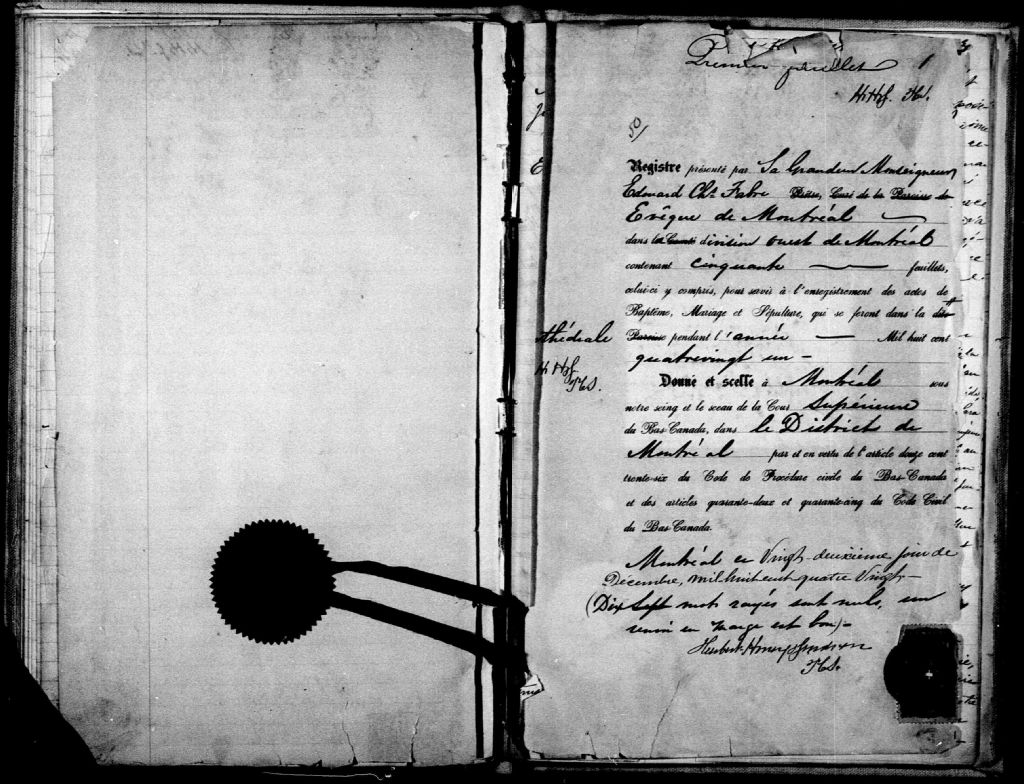 Premier feuillet 1
50/
Registre présenté par Sa Grandeur Monseigneur
Edouard Chs Fabre Prêtre, Curé de la Paroisse de
Evêque de Montréal
dans le Comté division ouest de Montréal
contenant cinquante feuillets,
celui-ci y compris, pour servir à l'enregistrement des actes de
Baptême, Mariage et Sépulture, qui se feront dans la dite
thédrale
Paroisse pendant l'année Mil huit cent
quatrevingt un -
Donné et scellé à Montréal sous
notre seing et le sceau de la Cour Supérieure
du Bas-Canada, dans le District de
Montréal par et en vertu de l'article douze cent
trente-six du Code de Procédure civile du Bas-Canada
et des articles quarante-deux et quarante-cinq du Code Civil
du Bas-Canada.
Montréal ce Vingt-deuxième jour de
Décembre, mil huit cent quatre Vingt-
(Dix Sept mots rayés sont nuls, un
renvoi en marge est bon)-